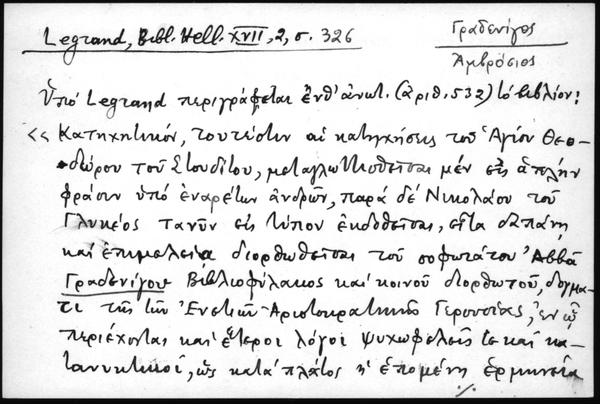 Legrand, Bibl. Hell. XVII, 2, σ. 326
Γραδενίγος
Ἀμβρόσιος
Ὑπό Legrand περιγράφεται ἐνθ' ἀνωτ. (ἀριθ. 532) τό βιβλίον:
<< Κατηχητικόν, τουτέστιν αἱ κατηχήσεις τοῦ Ἁγίου Θεο-
δώρου τοῦ Στουδίτου, μεταγλωττισθεῖσαι μέν εἰς ἁπλήν
φράσιν ὑπό ἐναρέτων ἀνδρῶν, παρά δέ Νικολάου τοῦ
Γλυκέος τανῦν εἰς τύπον ἐκδοθεῖσαι, εἶτα δαπάνῃ
καί ἐπιμελείᾳ διορθωθεῖσαι τοῦ σοφωτάτου Ἀββᾶ
Γραδενίγου Βιβλιοφύλακος καί κοινοῦ διορθωτοῦ, δόγμα-
τι τῆς τῶν Ἐνετῶν Ἀριστοκρατικῆς Γερουσίας, ἐν ᾧ
περιέχονται καί ἕτεροι λόγοι ψυχωφελεῖς τε καί κα-
τανυκτικοί, ὡς κατά πλάτος ἡ ἑπομένη ἑρμηνεία
./.